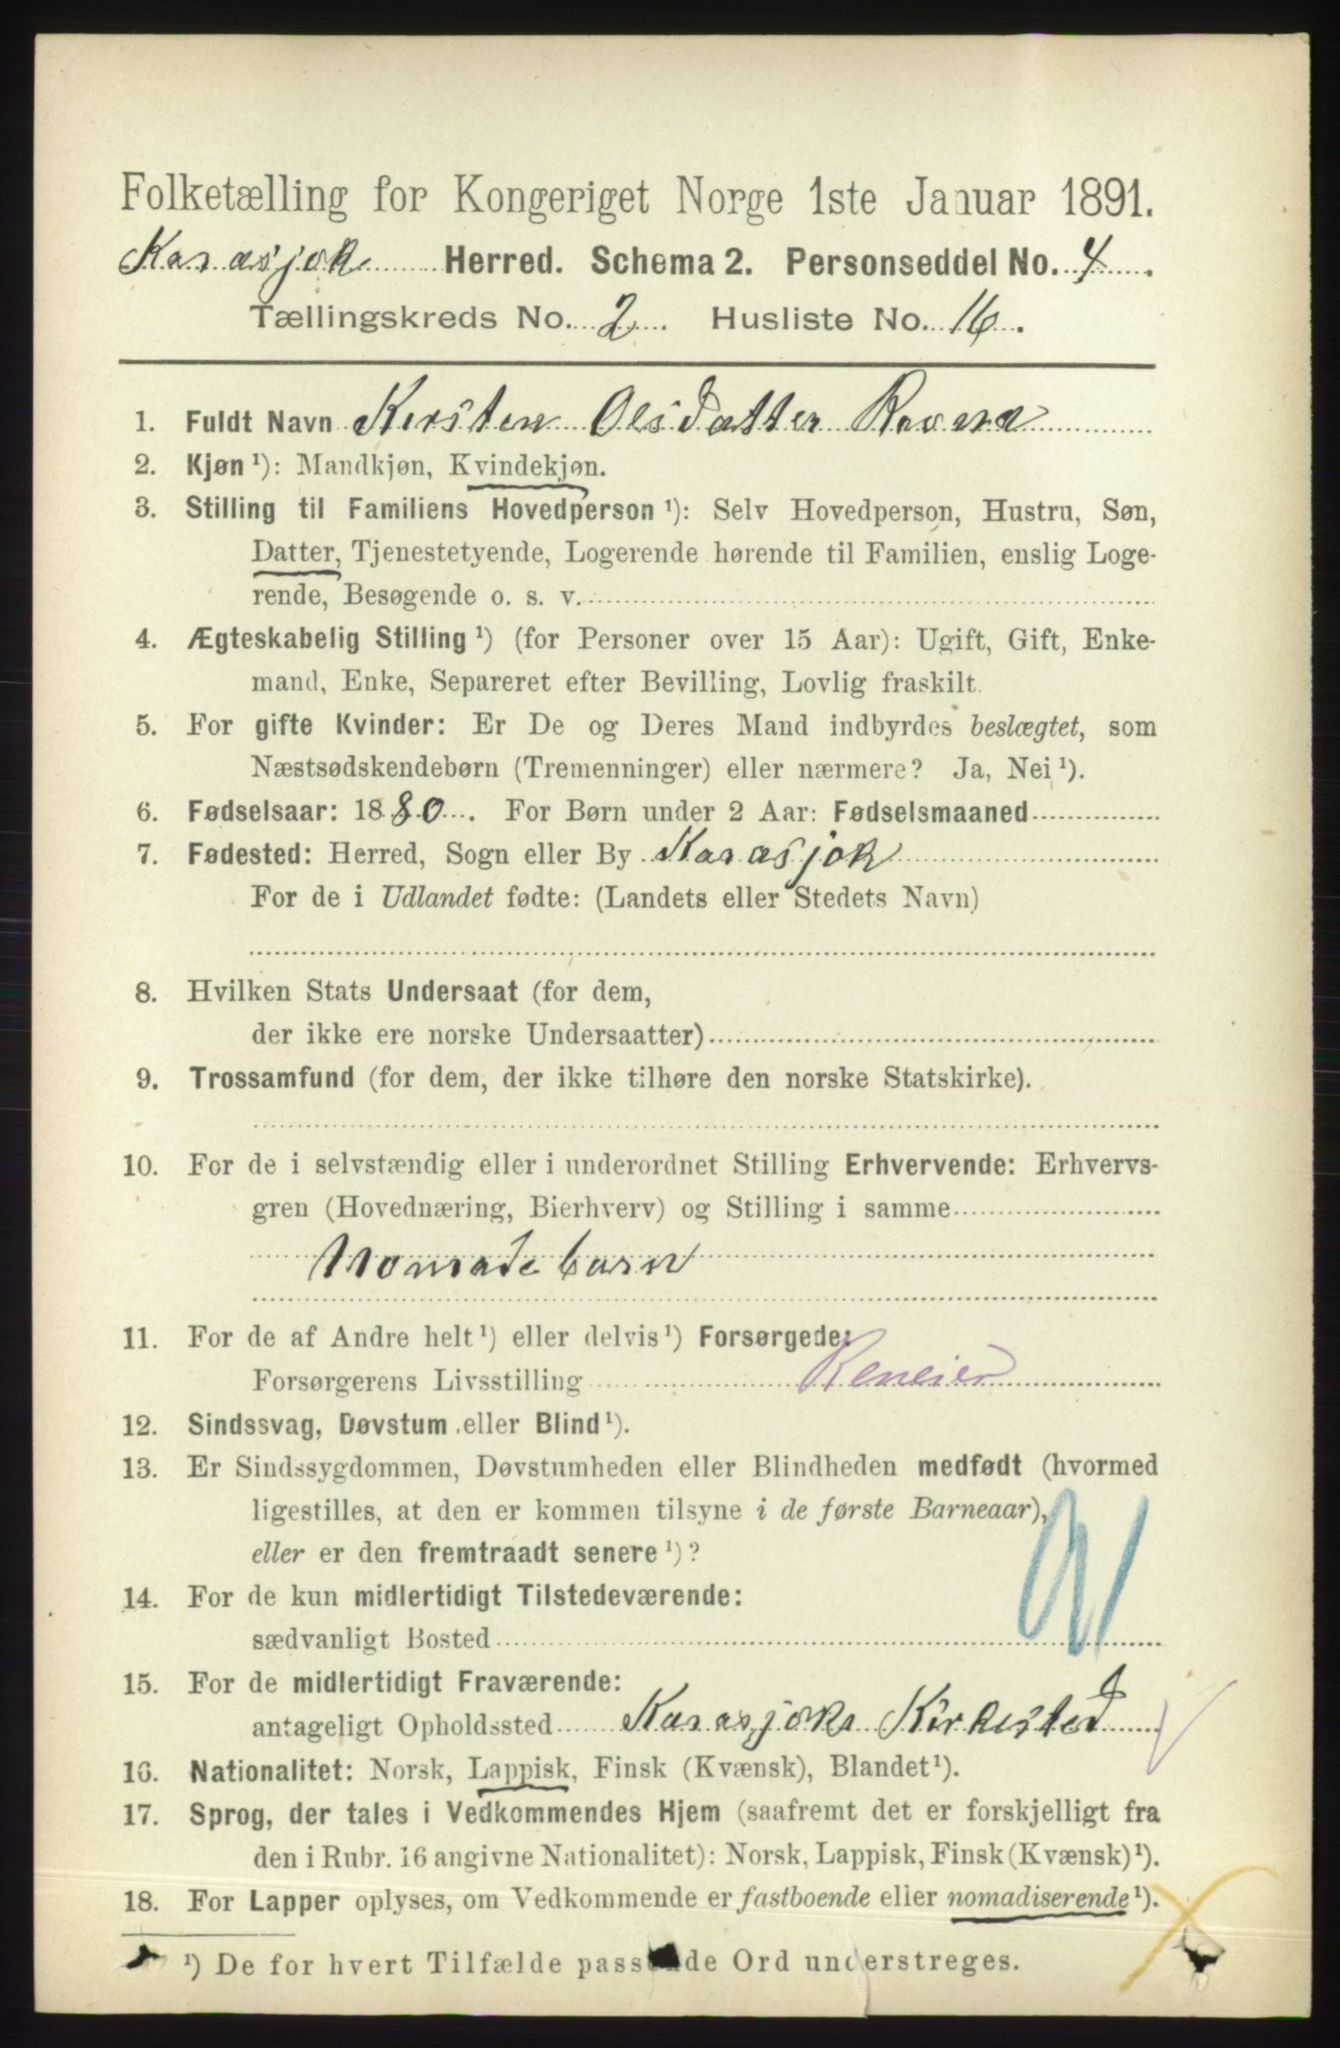 Folketælling for Kongeriget Norge 1ste Januar 1891.
Karasjok Herred. Schema 2. Personseddel No. 4.
Tællingskreds No. 2. Husliste No. 16.
1. Fuldt Navn Kirsten Olsdatter Ravna
2. Kjøn ¹): Mandkjøn, Kvindekjøn.
3. Stilling til Familiens Hovedperson ¹): Selv Hovedperson, Hustru, Søn,
Datter, Tjenestetyende, Logerende hørende til Familien, enslig Loge-
rende, Besøgende o. s. v.
4. Ægteskabelig Stilling ¹) (for Personer over 15 Aar): Ugift, Gift, Enke-
mand, Enke, Separeret efter Bevilling, Lovlig fraskilt.
5. For gifte Kvinder: Er De og Deres Mand indbyrdes beslægtet, som
Næstsødskendebørn (Tremenninger) eller nærmere? Ja, Nei ¹).
6. Fødselsaar: 1880. For Børn under 2 Aar: Fødselsmaaned
7. Fødested: Herred, Sogn eller By Karasjok
For de i Udlandet fødte: (Landets eller Stedets Navn)
8. Hvilken Stats Undersaat (for dem,
der ikke ere norske Undersaatter)
9. Trossamfund (for dem, der ikke tilhøre den norske Statskirke).
10. For de i selvstændig eller i underordnet Stilling Erhvervende: Erhvervs-
gren (Hovednæring, Bierhverv) og Stilling i samme
Nomadebarn
11. For de af Andre helt ¹) eller delvis ¹) Forsørgede:
Forsørgerens Livsstilling Reneier
12. Sindssvag, Døvstum eller Blind ¹).
13. Er Sindssygdommen, Døvstumheden eller Blindheden medfødt (hvormed
ligestilles, at den er kommen tilsyne i de første Barneaar),
eller er den fremtraadt senere ¹)?
91
14. For de kun midlertidigt Tilstedeværende:
sædvanligt Bosted
15. For de midlertidigt Fraværende:
antageligt Opholdssted Karasjok Kirkested
16. Nationalitet: Norsk, Lappisk, Finsk (Kvænsk), Blandet ¹).
17. Sprog, der tales i Vedkommendes Hjem (saafremt det er forskjelligt fra
den i Rubr. 16 angivne Nationalitet): Norsk, Lappisk, Finsk (Kvænsk) ¹).
18. For Lapper oplyses, om Vedkommende er fastboende eller nomadiserende ¹).
¹) De for hvert Tilfælde passende Ord understreges.